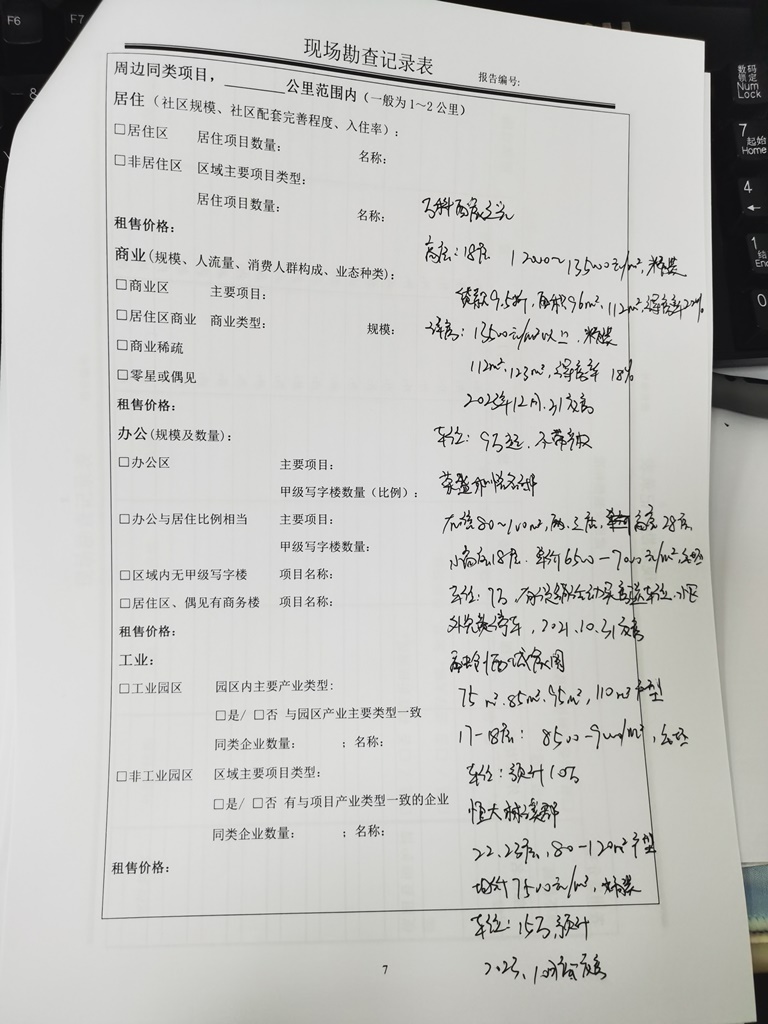 现场勘查记录表
报告编号:
周边同类项目，______公里范围内（一般为1～2公里）
居住（社区规模、社区配套完善程度、入住率）:
□居住区 居住项目数量: 名称:
□非居住区 区域主要项目类型:
居住项目数量: 名称: 万科西家之光
租售价格:
高层: 18层 12000～13500元/m², 精装
商业(规模、人流量、消费人群构成、业态种类):
□商业区 主要项目:
贷款9.5折, 面积96m², 112m², 得房率20%
□居住区商业 商业类型: 规模:
洋房: 13500元/m²以上, 精装
□商业稀疏
112m², 123m², 得房率 18%
□零星或偶见
2023年12月.31交房
租售价格:
办公(规模及数量):
车位: 9万起, 不带产权
□办公区 主要项目:
甲级写字楼数量（比例）:
荣盛
□办公与居住比例相当 主要项目:
80～100m², 高层28层
甲级写字楼数量:
小高层18层. 单价6500—7000元/m², 毛坯
□区域内无甲级写字楼 项目名称:
车位: 7万,
□居住区、偶见有商务楼 项目名称:
外免费停车, 2021.10.31交房
租售价格:
工业:
□工业园区 园区内主要产业类型:
75m².85m².95m², 110m²户型
□是/ □否 与园区产业主要类型一致
17-18层: 8500-9000/m², 毛坯
同类企业数量: ；名称:
□非工业园区 区域主要项目类型:
车位: 预计10万
□是/ □否 有与项目产业类型一致的企业
恒大林溪郡
同类企业数量: ；名称:
22.23层, 80-120m²户型
租售价格:
均价7500元/m², 精装
车位: 15万, 预计
2023, 10 交房
7
F6
F7
&
数码锁定
Num Lock
7
起始
Home
4
←
1
End
0